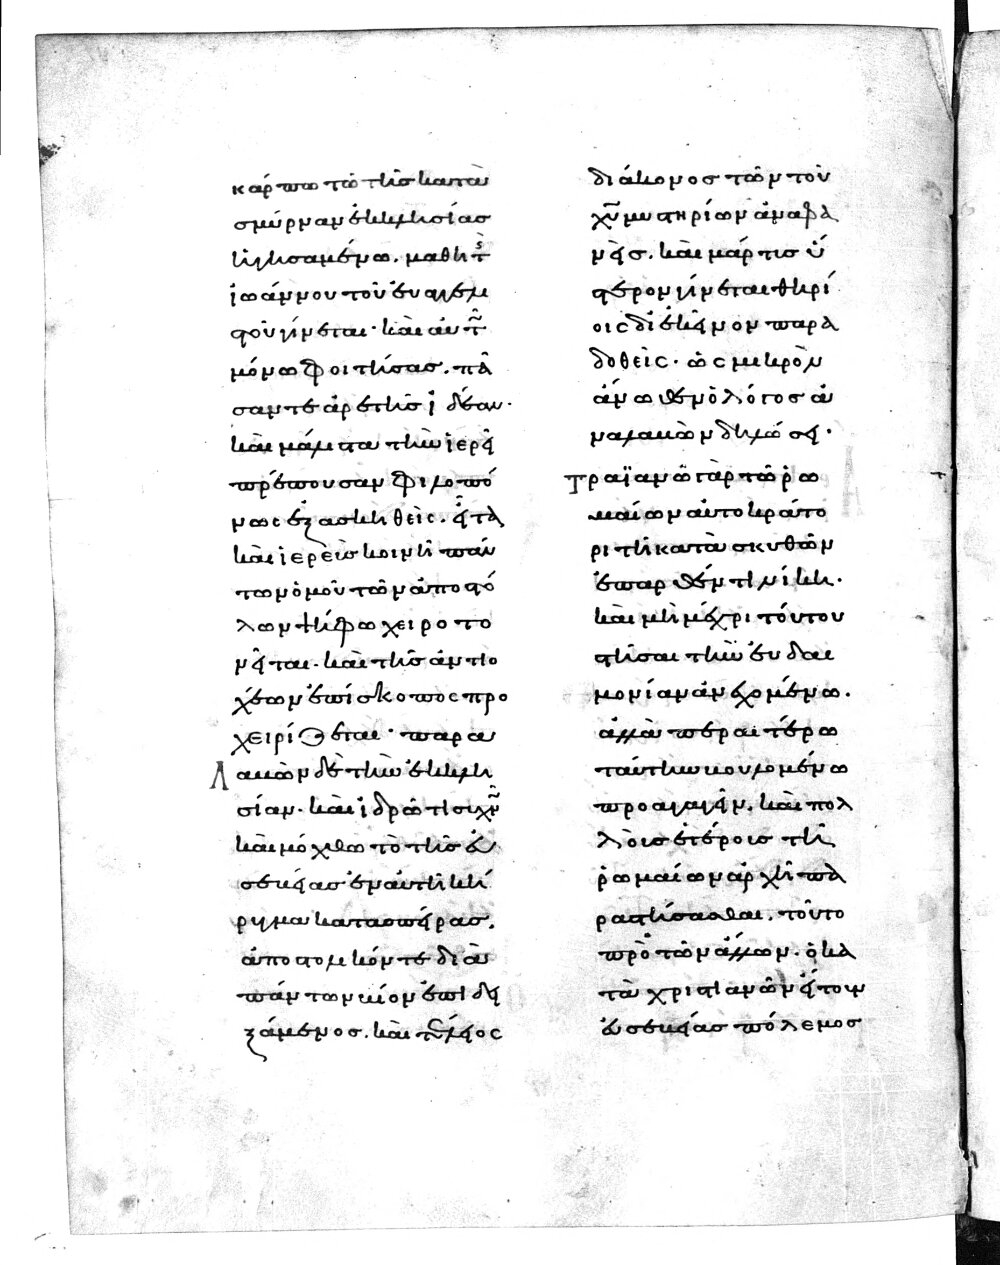 κάρπω τῶ τῆσ κατὰ
σμύρναν ἐκκλησίας
ἡγησαμένω. μαθητ(ὴς)
ἰωάννου τοῦ εὐαγγελι
στοῦ γίνεται· καὶ αὐτῶ
μόνω φοιτήσας. πᾶ
σαν τε ἀρετῆσ ἰδέαν.
καὶ μάλιστα τὴν ἱερᾶ
πρέπουσαν φιλοπό
νως ἐξασκηθεὶς. εἶτα
καὶ ἱερεὺσ κοινῆ πάν
των ὁμοῦ τῶν ἀποστό
λων ψήφω χειροτο
νεῖται. καὶ τῆσ ἀντιο
χέων ἐπίσκοπος προ
χειρίζεται· παραυ
λακῶν δὲ τὴν ἐκκλη
σίαν. καὶ ἱδρῶτι συχνῶ
καὶ μόχθω τὸ τῆσ εὐ
σεβείας ἐν αὐτῆ κή
ρυγμα κατασπείρας.
ἀποστολικόν τε διὰ
πάντων βίον ἐπιδει
ξάμενος. καὶ τέλεος
διάκονοσ τῶν τοῦ
χυ μυστηρίων ἀναφα
νεὶσ. καὶ μάρτυσ ὕ
στερον γίνεται θηρί
οις δι' ἐκεῖνον παρα
δοθεὶς. ὡς μικρὸν
ἄνωθεν ὁ λόγοσ ἀ
ναλαβὼν δηλώσει.
τραϊανῶ γὰρ τῶ ῥω
μαίων αὐτοκράτο
ρι τῆ κατὰ σκυθῶν
ἐπαρθέντι νίκη.
καὶ μὴ μέχρι τούτου
στῆσαι τὴν εὐδαι
μονίαν ἀνεχομένω.
ἀλλὰ περαιτέρω
ταύτην βουλομένω
προαγαγεῖν. καὶ πολ
λοῖσ ἑτέροισ τῆ
ῥωμαίων ἀρχῆ πα
ραστήσασθαι. τοῦτο
πρὸ τῶν ἄλλων. ὁ κα
τὰ χριστιανῶν ἤτοι
εὐσεβείασ πόλεμοσ